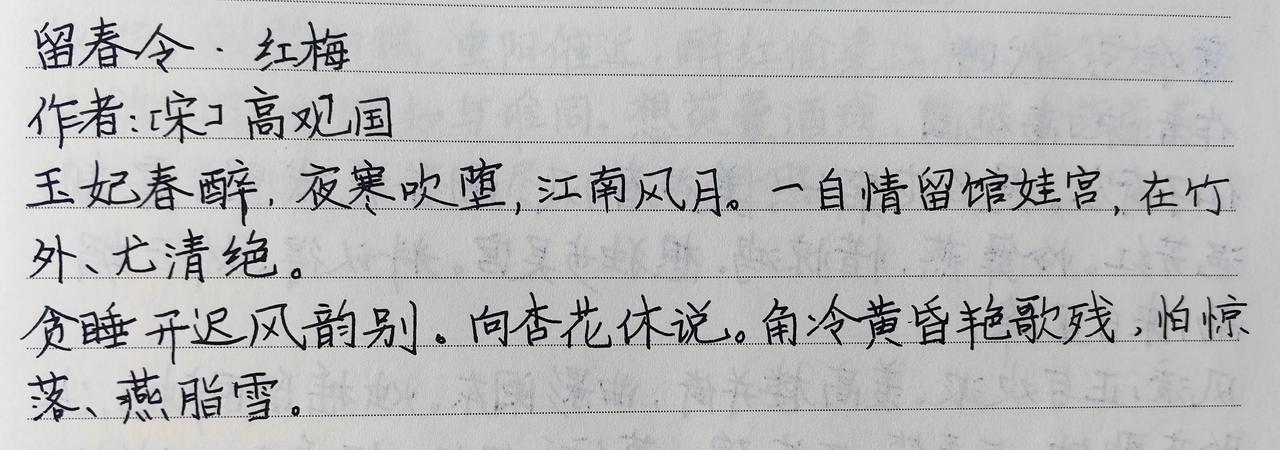 留春令·红梅
作者:[宋]高观国
玉妃春醉,夜寒吹堕,江南风月。一自情留馆娃宫,在竹
外、尤清绝。
贪睡开迟风韵别。向杏花休说。角冷黄昏艳歌残,怕惊
落、燕脂雪。